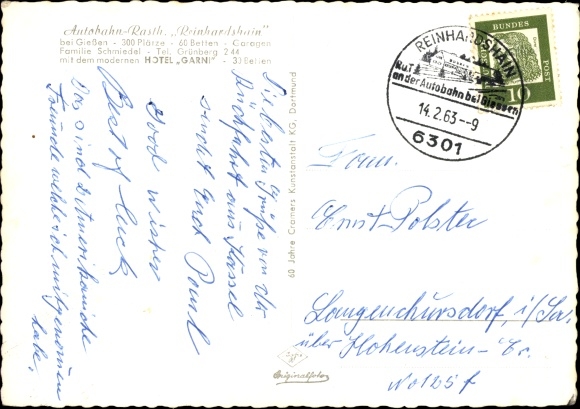 Autobahn-Rasth. „Reinhardshain"
bei Gießen - 300 Plätze - 60 Betten - Garagen
Familie Schmiedel - Tel. Grünberg 2 44
mit dem modernen HOTEL „GARNI" - 30 Betten
Die besten Grüße von der
Rückfahrt aus Kassel
sendet Euch Paul
Good wishes
Best of luck
Das sind 2 Amerikanische
Freunde welche ich mitgenommen
habe.
60 Jahre Cramers Kunstanstalt KG, Dortmund
Originalfoto
REINHARDSHAIN
RuT
an der Autobahn bei Giessen
14.2.63--9
6301
DEUTSCHE
BUNDES
POST
10
Fam.
Ernst Polster
Langenchursdorf, i/Sa.
über Hohenstein-Er.
No 125 f